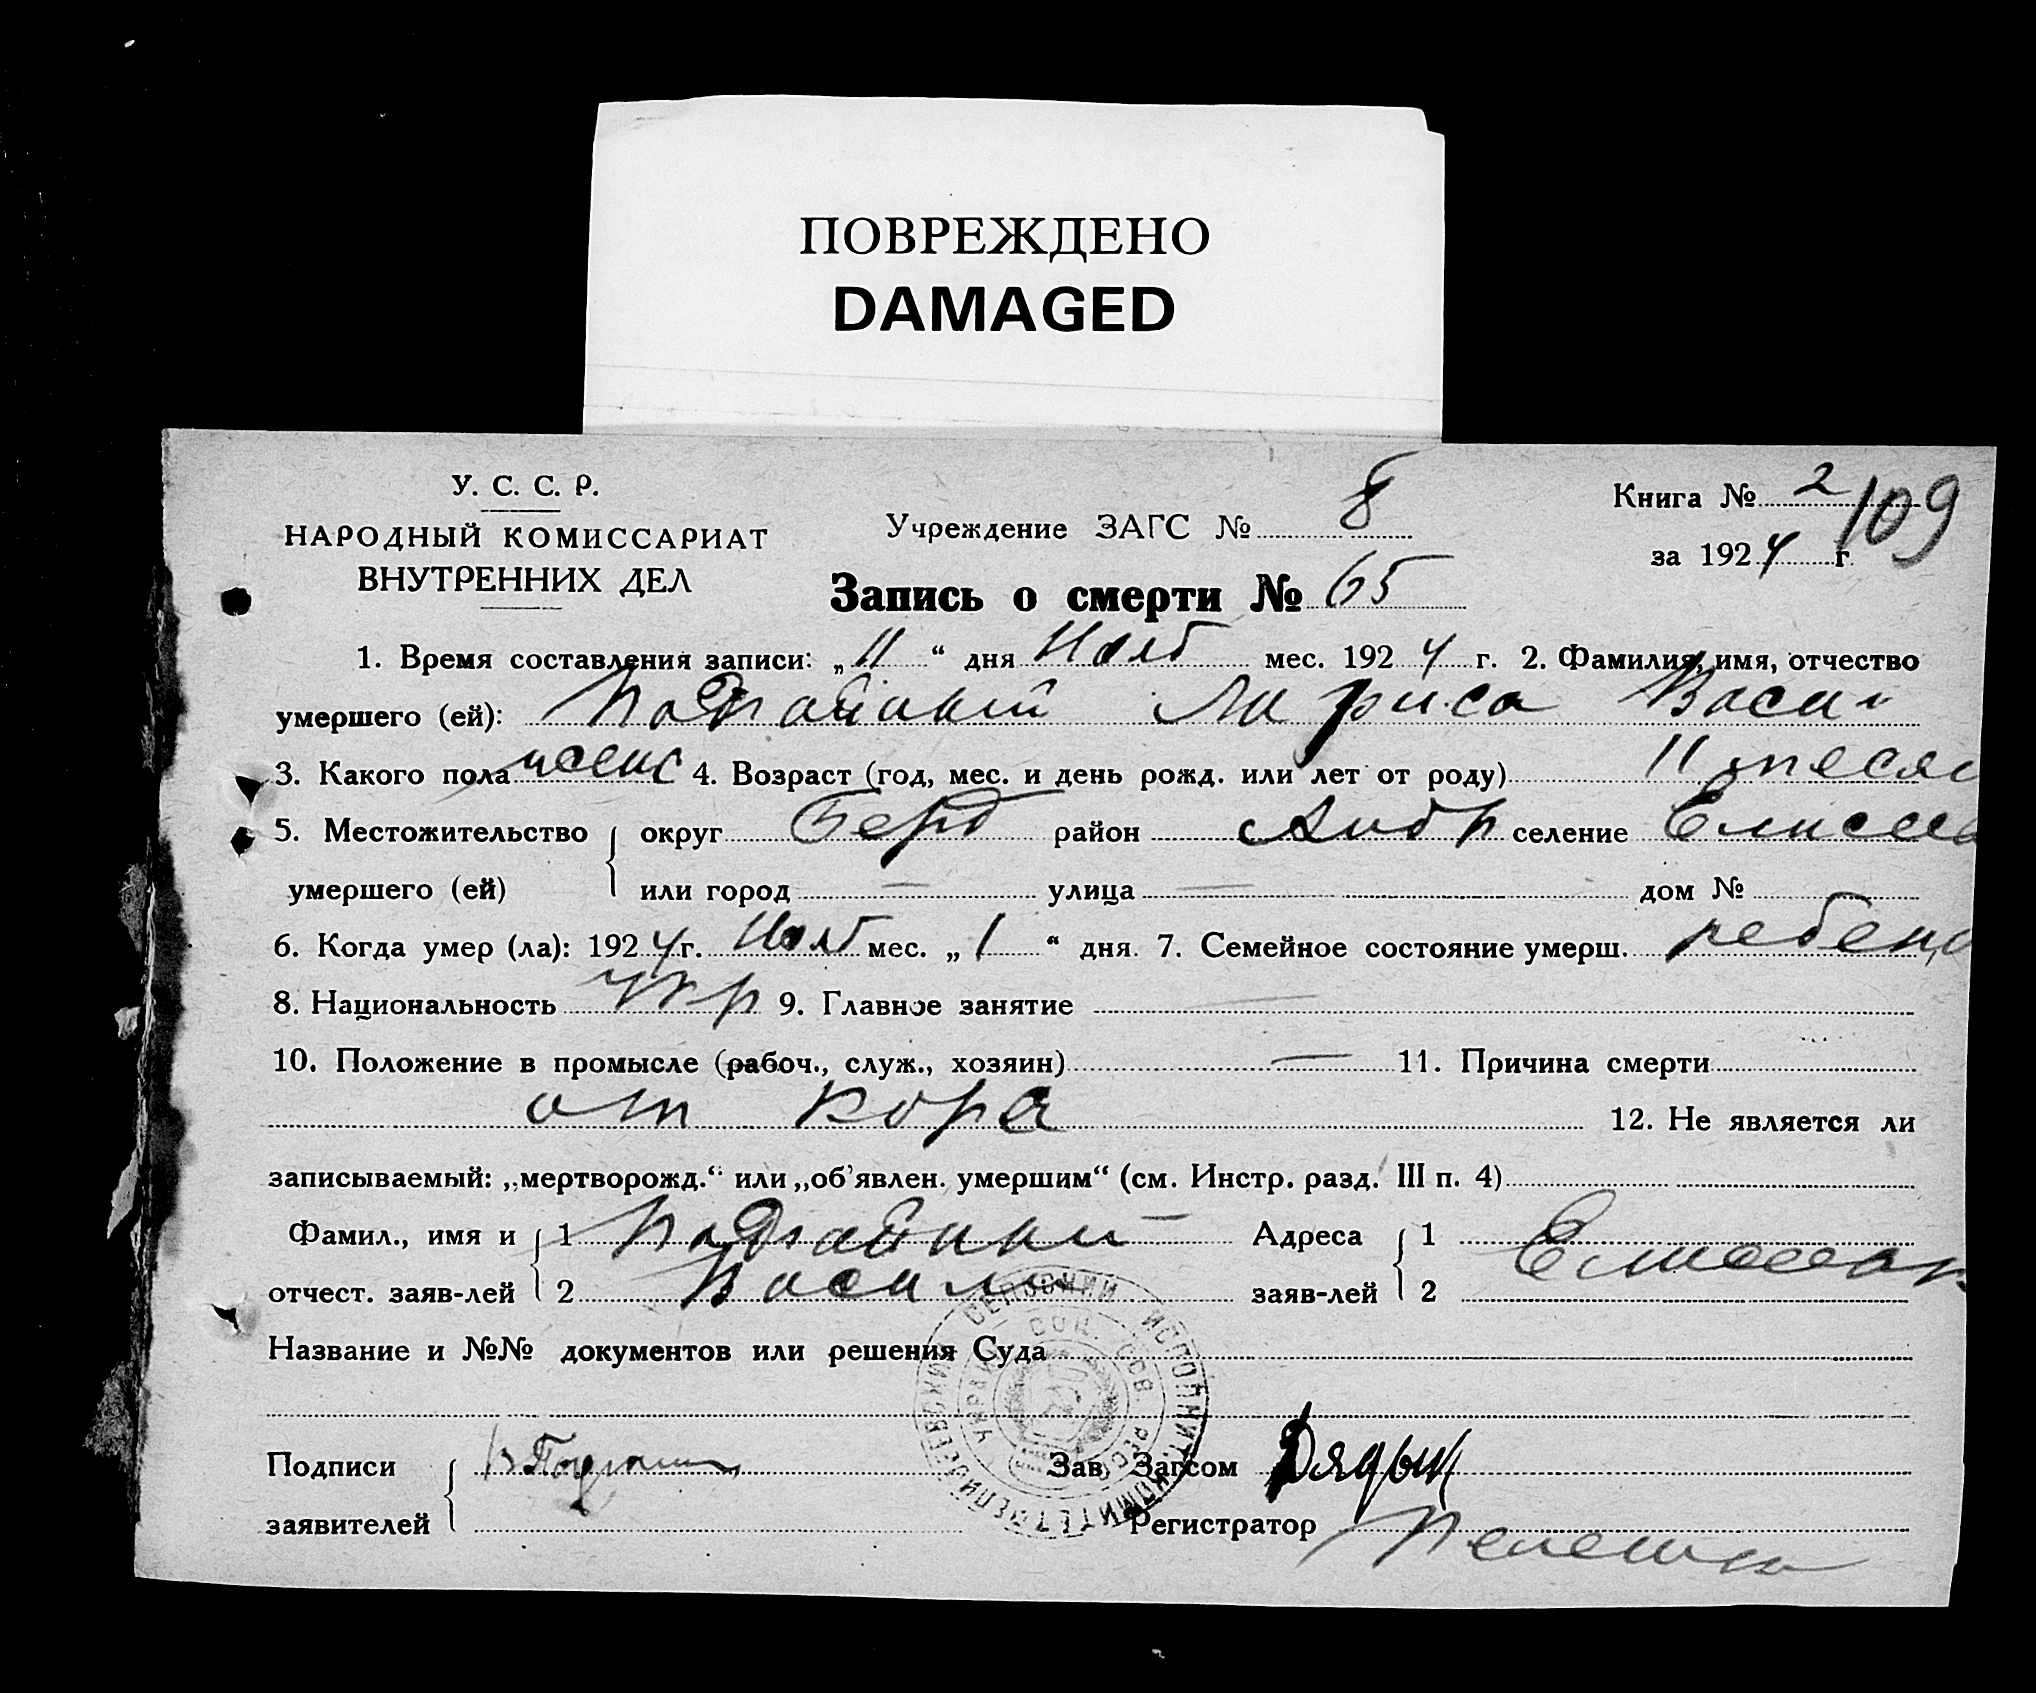 ПОВРЕЖДЕНО
DAMAGED
У. С. С. Р.
НАРОДНЫЙ КОМИССАРИАТ
ВНУТРЕННИХ ДЕЛ
Учреждение ЗАГС № 8
Книга № 2 109
за 1924 г.
Запись о смерти № 65
1. Время составления записи: „11“ дня Нояб мес. 1924 г. 2. Фамилия, имя, отчество
умершего (ей): Лариса Васил
3. Какого пола женс 4. Возраст (год, мес. и день рожд. или лет от роду) 11 месяц
5. Местожительство округ Берд район Андр селение Елисеев
умершего (ей) или город — улица — дом №
6. Когда умер (ла): 1924 г. Нояб мес. „1“ дня. 7. Семейное состояние умерш. ребено
8. Национальность Укр 9. Главное занятие —
10. Положение в промысле (рабоч., служ., хозяин) — 11. Причина смерти
от кора 12. Не является ли
записываемый: „мертворожд.“ или „об'явлен. умершим“ (см. Инстр. разд. III п. 4)
Фамил., имя и 1 Адреса 1
отчест. заяв-лей 2 Васили заяв-лей 2
Название и №№ документов или решения Суда
Подписи Зав. Загсом
заявителей Регистратор